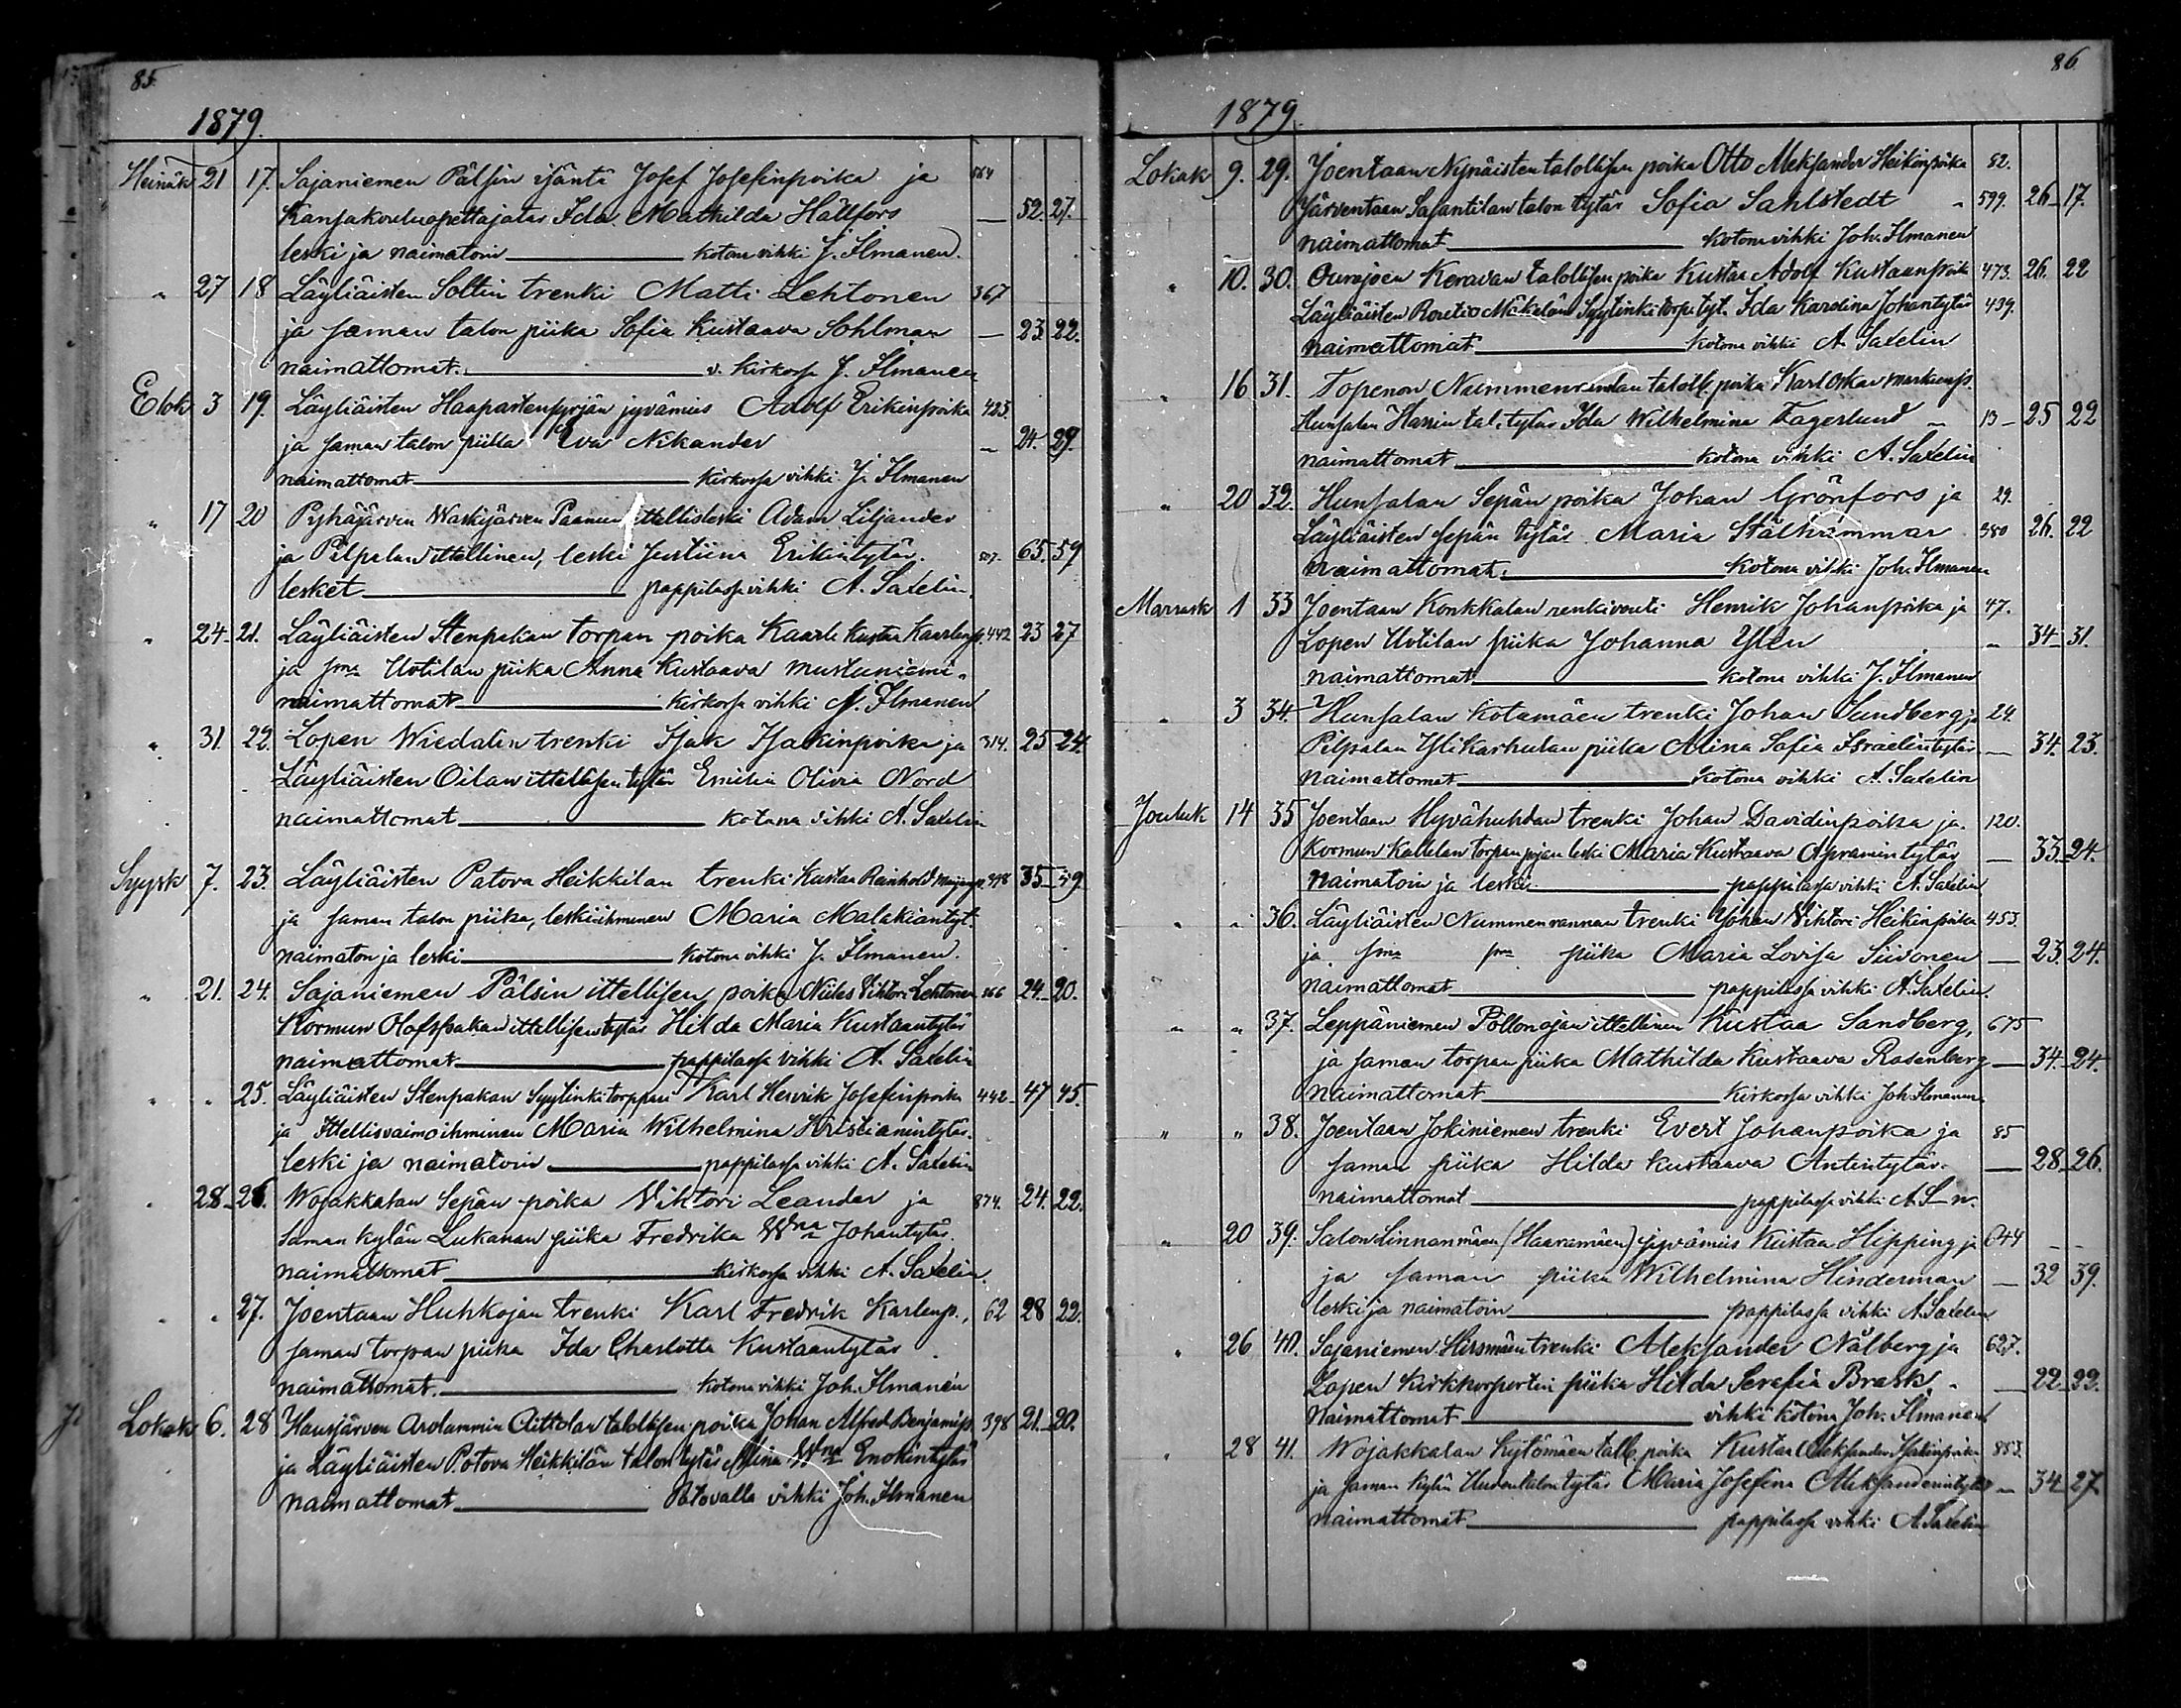 85.
1879.
Heinäk 21 17. Sajaniemen Pälsin isäntä Josef Josefinpoika ja 564
Kansakouluopettajatar Ida Mathilda Hällfors — 52. 27.
leski ja naimatoin — kotona vihki J. Ilmanen.
" 27 18 Läyliäisten Soltin trenki Matti Lehtonen 367
ja saman talon piika Sofia Kustaava Sohlman — 23 22.
naimattomat. — v. Kirkossa J. Ilmanen
Elok 3 19. Läyliäisten jyvämies Adolf Erikinpoika 423.
ja saman talon piika Eva Nikander — 24. 29.
naimattomat — Kirkossa vihki J. Ilmanen
" 17 20 Pyhäjärven Waskijärven ittellisleski Adam Liljander
ja Pilpalan ittellinen, leski Justiina Erikintytär. 507. 65. 59
lesket — pappilassa vihki A. Saxelin.
" 24 21. Läyliäisten Stenpakan torpan poika Kaarle Kustaa Kaarlenp. 442 23 27
ja sma Uotilan piika Anna Kustaava Mustuniemi.
naimattomat — kirkossa vihki J. Ilmanen
" 31. 22. Lopen Wiedalin trenki Isak Isakinpoika ja 314. 25 24.
Läyliäisten Oilan ittellisen tytär Emilia Olivia Nord
naimattomat — kotona vihki A. Saxelin
Syysk 7. 23. Läyliäisten Patova Heikkilan trenki Kustaa Reinhold 398 35 39
ja saman talon piika, leskiihminen Maria Malakiantyt.
naimaton ja leski — kotona vihki J. Ilmanen.
" 21. 24. Sajaniemen Pälsin ittellisen poika Niilas Viktori Lehtonen 566 24. 20.
Kormun Olofspakan ittellisen tytär Hilda Maria Kustaantytär
naimattomat — pappilassa vihki A. Saxelin
" " 25. Läyliäisten Stenpakan Syytinki torppari Karl Henrik Josefinpoika 442 47 45.
ja Ittellisvaimoihminen Maria Wilhelmina Kristianintytär.
leski ja naimatoin — pappilassa vihki A. Saxelin
" 28 26. Wojakkalan Sepän poika Viktori Leander ja 874. 24. 22.
Saman kylän Lukanan piika Fredrika Wna Johantytär.
naimattomat — kirkossa vihki A. Saxelin.
" " 27. Joentaan Huhkojan trenki Karl Fredrik Karlenp., 62 28 22.
saman torpan piika Ida Charlotta Kustaantytär.
naimattomat. — kotona vihki Joh. Ilmanen
Lokak 6. 28 Hausjärven Arolammin Aittolan talollisen poika Johan Alfred Benjaminp. 398 21. 20.
ja Läyliäisten Potova Heikkilän talon tytär Miina Wna Enokintytär
naimattomat — Patovalla vihki Joh. Ilmanen
86
1879.
Lokak 9. 29. Joentaan Nynäisten talollisen poika Otto Aleksander Heikinpoika 52.
Järventaan Sasantilan talon tytär Sofia Sahlstedt " 599. 26 17.
naimattomat — kotona vihki Joh. Ilmanen
" 10. 30. Ourajoen Keravan talollisen poika Kustaa Adolf Kustaanpoika 473. 26. 22
Läyliäisten Mäkelän Syytinki torp. tyt. Ida Karolina Johantytär 439.
naimattomat — kotona vihki A. Saxelin
" 16 31. Topenon Nummenrannan taloll. poika Karl Oskar
Hunsalan Hassin tal. tytär Ida Wilhelmina Fagerlund " 13 25 22
naimattomat — kotona vihki A. Saxelin
" 20 32. Hunsalan Sepän poika Johan Grönfors ja 29.
Läyliäisten sepän tytär Maria Stålhammar 380 26. 22
naimattomat. — kotona vihki Joh. Ilmanen
Marrask 1 33 Joentaan Konkkalan renkivouti Henrik Johanpoika ja 47.
Lopen Uotilan piika Johanna Ylen " 34 31.
naimattomat — kotona vihki J. Ilmanen
" 3 34. Hunsalan Kotamäen trenki Johan Sundberg ja 24.
Pilpalan Ylikarhulan piika Miina Sofia Israelintytär — 34. 23.
naimattomat — kotona vihki A. Saxelin
Jouluk 14 35 Joentaan Hyvähuhdan trenki Johan Davidinpoika ja 120.
Kormun Kallelan torpan pojan leski Maria Kustaava Apramintytär — 33 24.
naimatoin ja leski — pappilassa vihki A. Saxelin
" " 36. Läyliäisten Nummenrannan trenki Johan Viktori Heikinpoika 453.
ja sma sma piika Maria Lovisa Siivonen — 23. 24.
naimattomat — pappilassa vihki A. Saxelin.
" " 37. Leppäniemen Pöllönojan ittellinen Kustaa Sandberg, 675
ja saman torpan piika Mathilda Kustaava Rosenberg — 34. 24.
naimattomat — kirkossa vihki Joh. Ilmanen.
" " 38. Joentaan Jokiniemen trenki Evert Johanpoika ja 85
saman piika Hilda Kustaava Antintytär. — 28 26.
naimattomat — pappilassa vihki A. S—n.
" 20 39. Salon Linnanmäen (Haaramäen) jyvämies Kustaa Hipping ja 644
ja saman piika Wilhelmina Hinderman — 32 39.
leski ja naimatoin — pappilassa vihki A. Saxelin
" 26 40. Sajaniemen Hirsmäen trenki Aleksander Nälberg ja 627.
Lopen Kirkkorportin piika Hilda Serafia Brask. — 22 22.
Naimattomat — vihki kotona Joh. Ilmanen
" 28 41. Wojakkalan Kytömäen tall. poika Kustaa Aleksander Isakinpoika 853.
ja saman kylän Uudentalon tytär Maria Josefina Aleksanderintytär — 34 27.
naimattomat — pappilassa vihki A. Saxelin